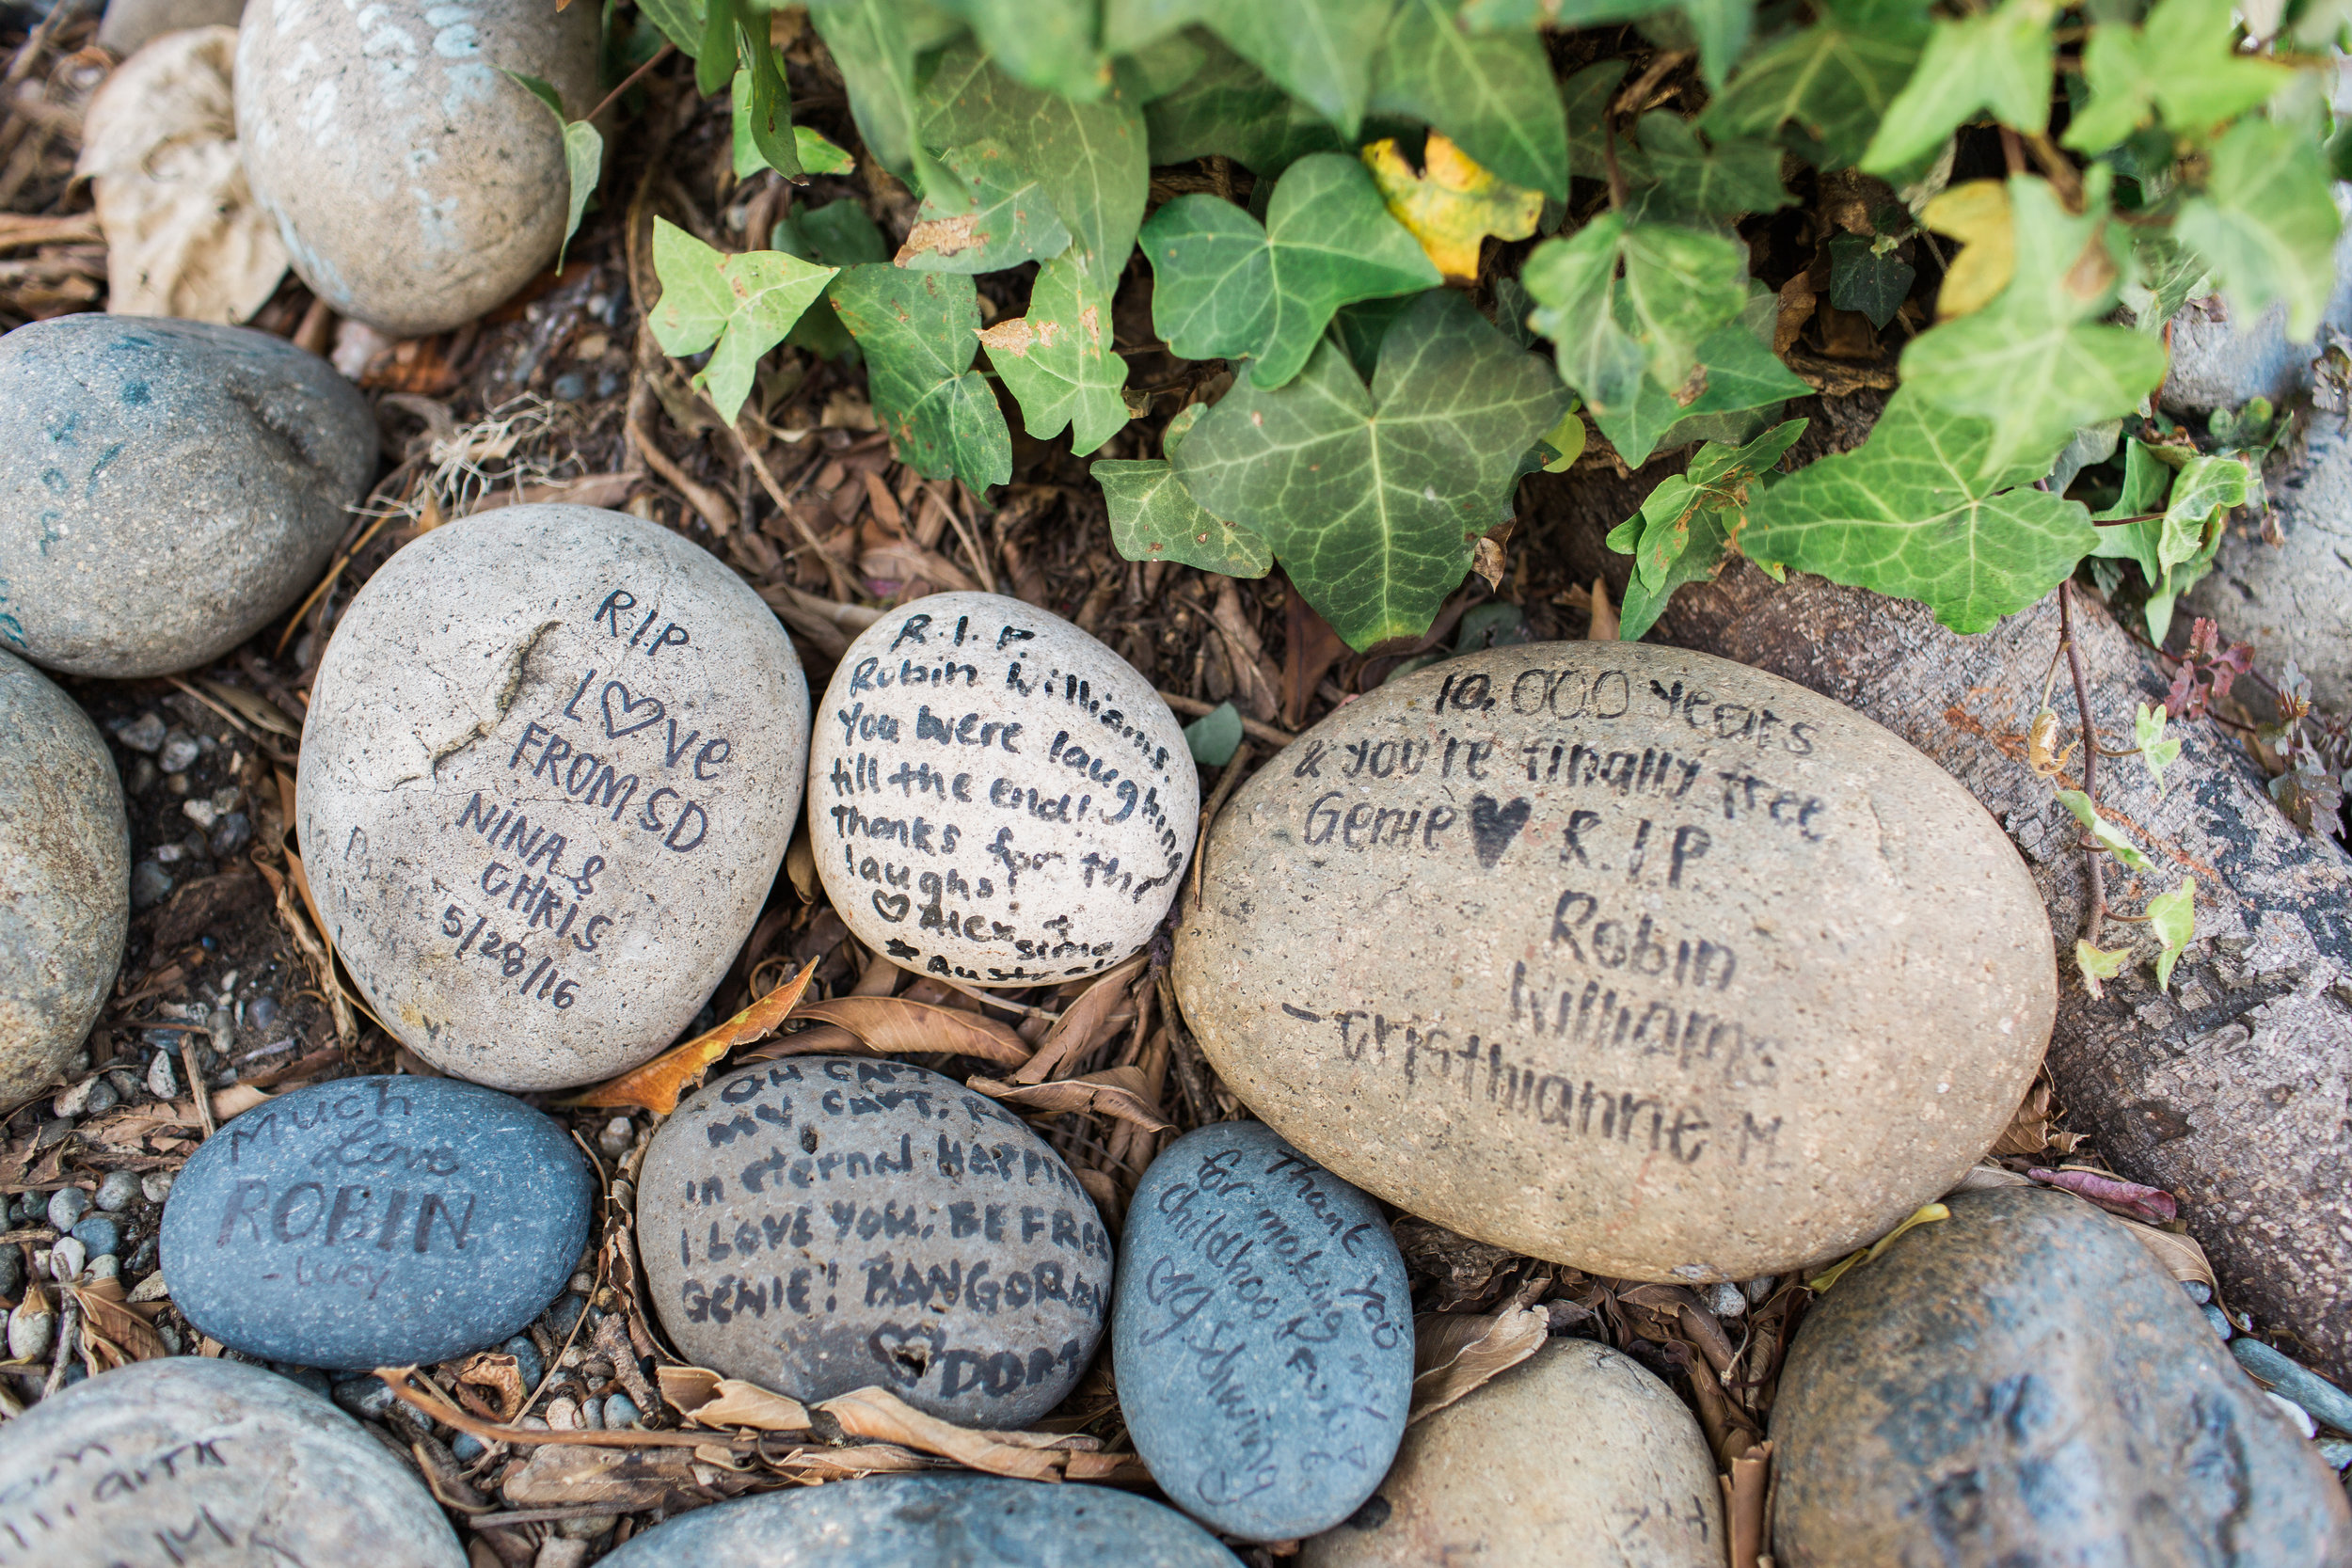 R.I.P.
LOVE
FROM SD
NINA &
CHRIS
5/28/16
R.I.P.
Robin Williams.
You were laughing
till the end!
Thanks for the
laughs!
♡ Alex
10,000 years
& you're finally free
Genie ♥ R.I.P.
Robin
Williams
- Cristhianne M.
Much
Love
ROBIN
- Lucy
OH CAPT.
MY CAPT.
in eternal HAPPIN
I LOVE YOU. BE FREE
GENIE! BANGORANG
♡ DOM
Thank you
for making my
childhood